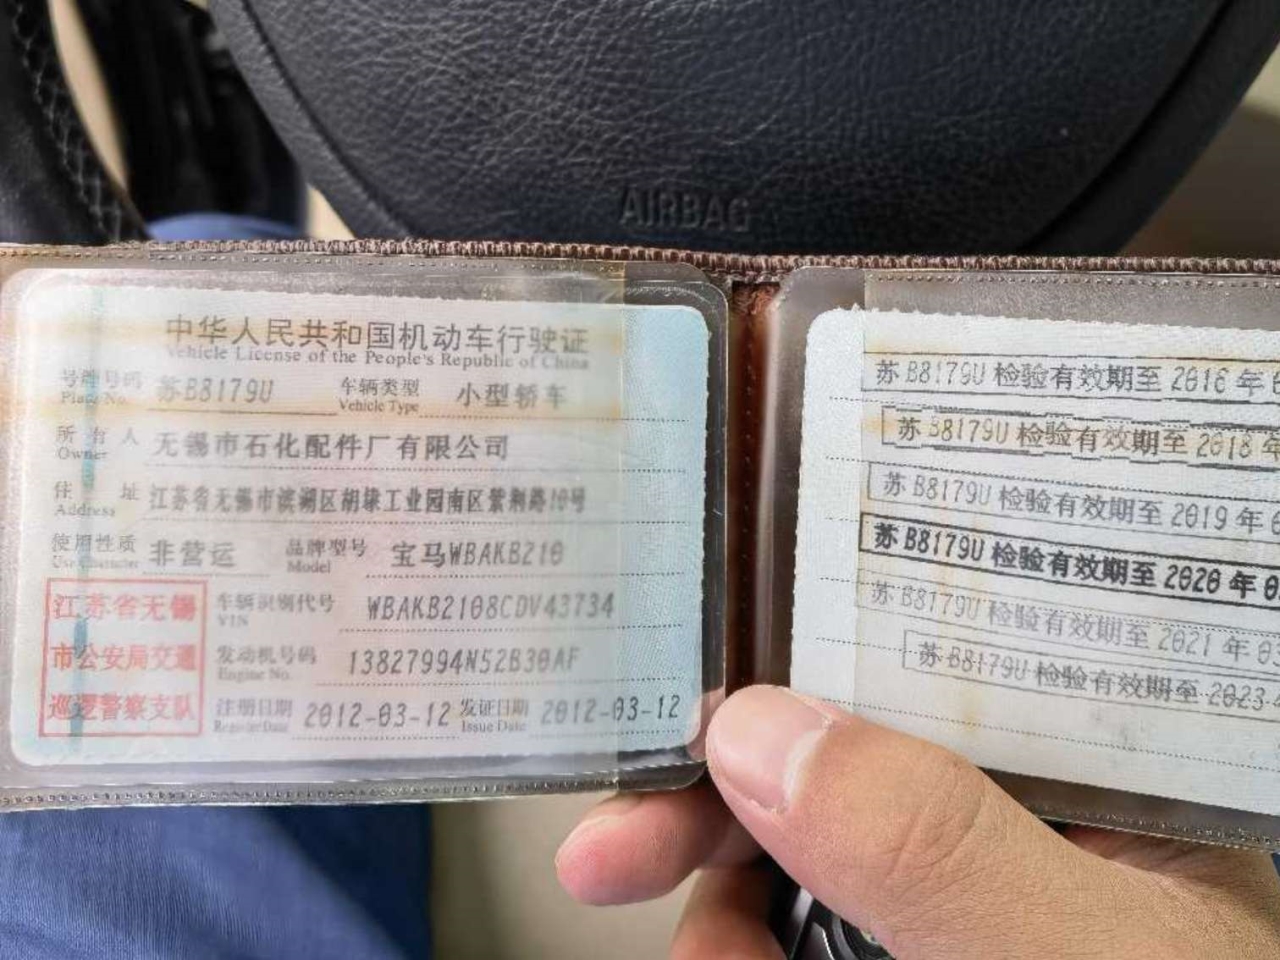 AIRBAG
中华人民共和国机动车行驶证
Vehicle License of the People's Republic of China
号牌号码 苏B8179U 车辆类型 小型轿车
Plate No. Vehicle Type
所有人 无锡市石化配件厂有限公司
Owner
住址 江苏省无锡市滨湖区胡埭工业园南区紫荆路10号
Address
使用性质 非营运 品牌型号 宝马WBAKB210
Use Character Model
江苏省无锡
市公安局交通
巡逻警察支队
车辆识别代号 WBAKB2108CDV43734
VIN
发动机号码 13827994N52B30AF
Engine No.
注册日期 2012-03-12 发证日期 2012-03-12
Register Date Issue Date
苏B8179U 检验有效期至 2016 年
苏B8179U 检验有效期至 2018 年
苏B8179U 检验有效期至 2019 年
苏B8179U 检验有效期至 2020 年
苏B8179U 检验有效期至 2021 年 03
苏B8179U 检验有效期至 2023